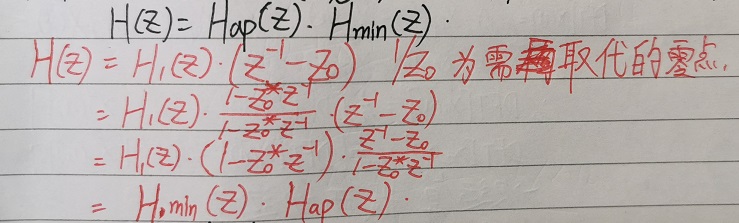 H(z) = Hap(z) · Hmin(z) .
H(z) = H₁(z) · (z⁻¹ - z₀) 1/z₀ 为需取代的零点.
= H₁(z) · (1 - z₀* z⁻¹)/(1 - z₀* z⁻¹) · (z⁻¹ - z₀)
= H₁(z) · (1 - z₀* z⁻¹) · (z⁻¹ - z₀)/(1 - z₀* z⁻¹)
= H.min(z) · Hap(z) .